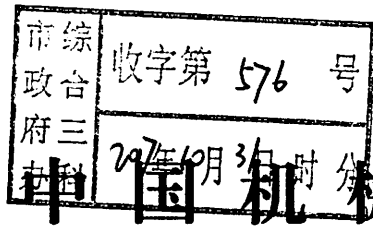 市政府办
综合三科
收字第 576 号
2017年10月31日 时 分
中国机